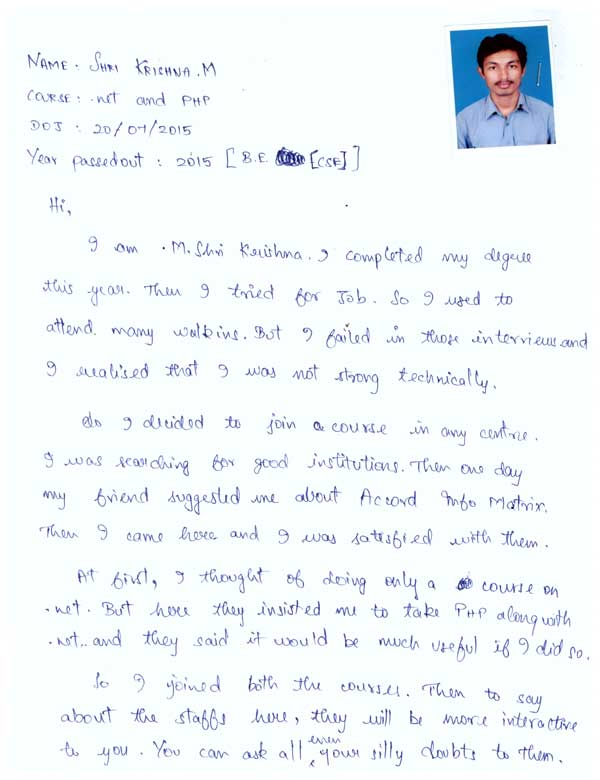 NAME : SHRI KRISHNA.M
COURSE : .net and PHP
DOJ : 20/07/2015
Year passedout : 2015 [B.E. [CSE]]
Hi,
I am . M.Shri Krishna. I completed my degree
this year. Then I tried for Job. So I used to
attend. many walkins. But I failed in those interviews and
I realised that I was not strong technically.
So I decided to join a course in any centre.
I was searching for good institutions. Then one day
my friend suggested me about Accord Info Matrix.
Then I came here and I was satisfied with them.
At first, I thought of doing only a course on
.net. But here they insisted me to take PHP along with
.net.. and they said it would be much useful if I did so.
So I joined both the courses. Then to say
about the staffs here, they will be more interactive
to you. You can ask all even your silly doubts to them.